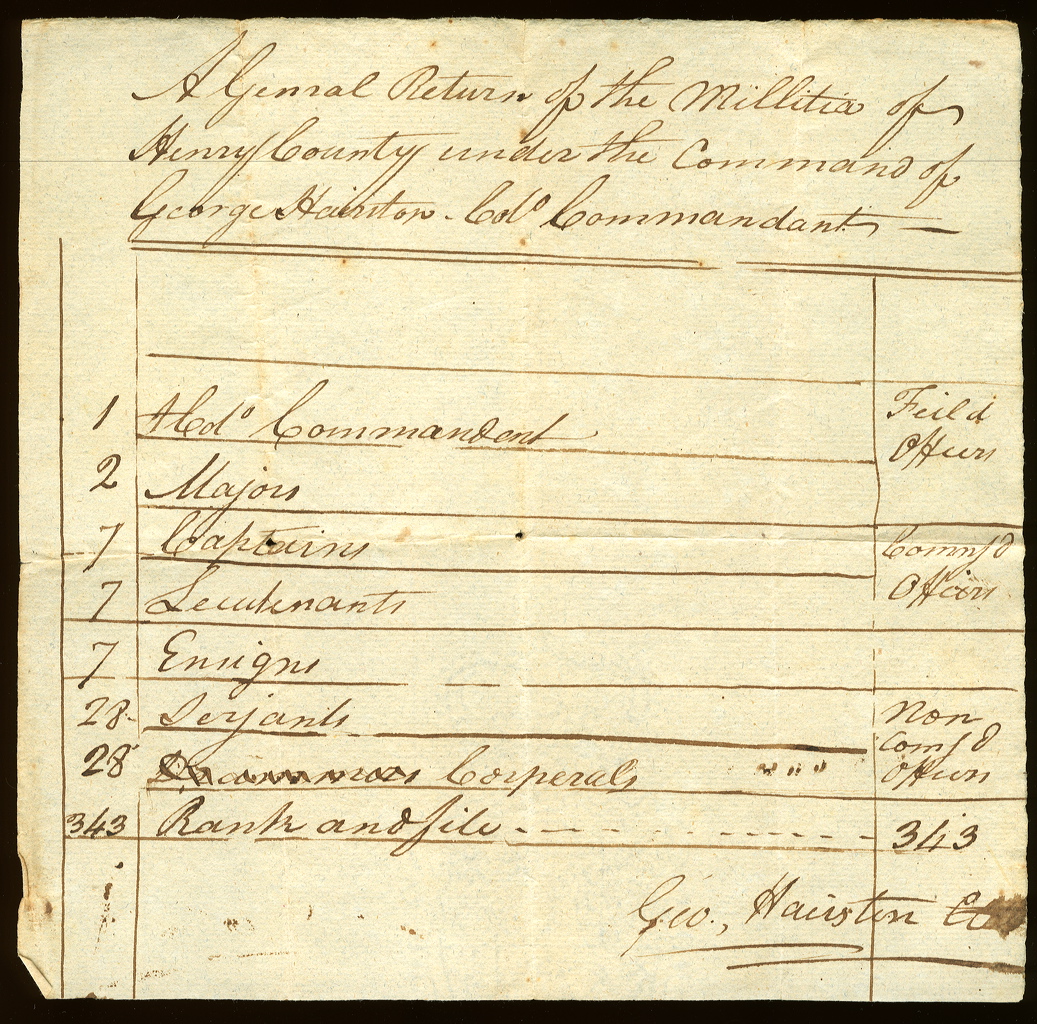 A Genral Return of the Millitia of
Henry County under the Command of
George Hairston Colo Commandant —
1 Colo Commandent Feild
Officers
2 Majors
7 Captains Comms'd
7 Leiutenants Officers
7 Ensigns
28 Serjants Non
28 Corperals Coms'd
Officers
343 Rank and file 343
Geo., Hairston